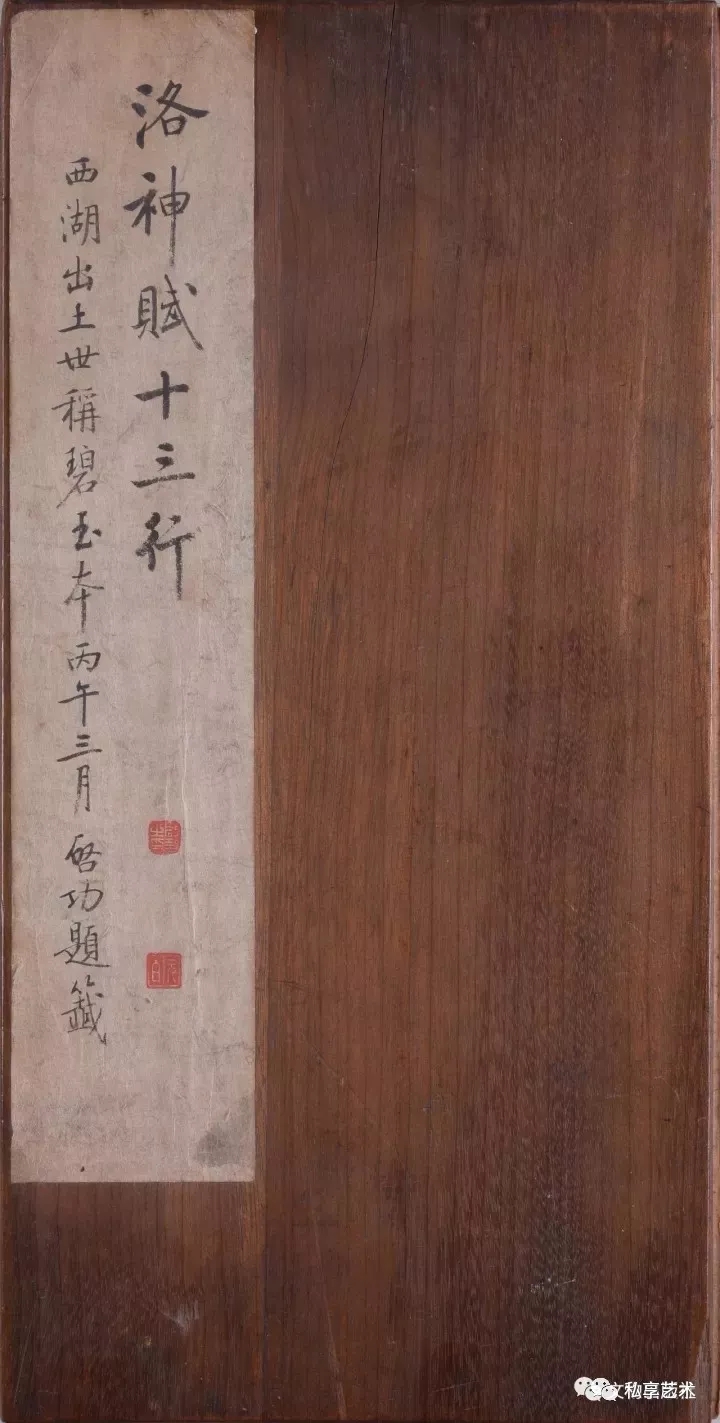 洛神賦十三行
西湖出土世稱碧玉本丙午三月 啓功題籤
元白
文私享艺术